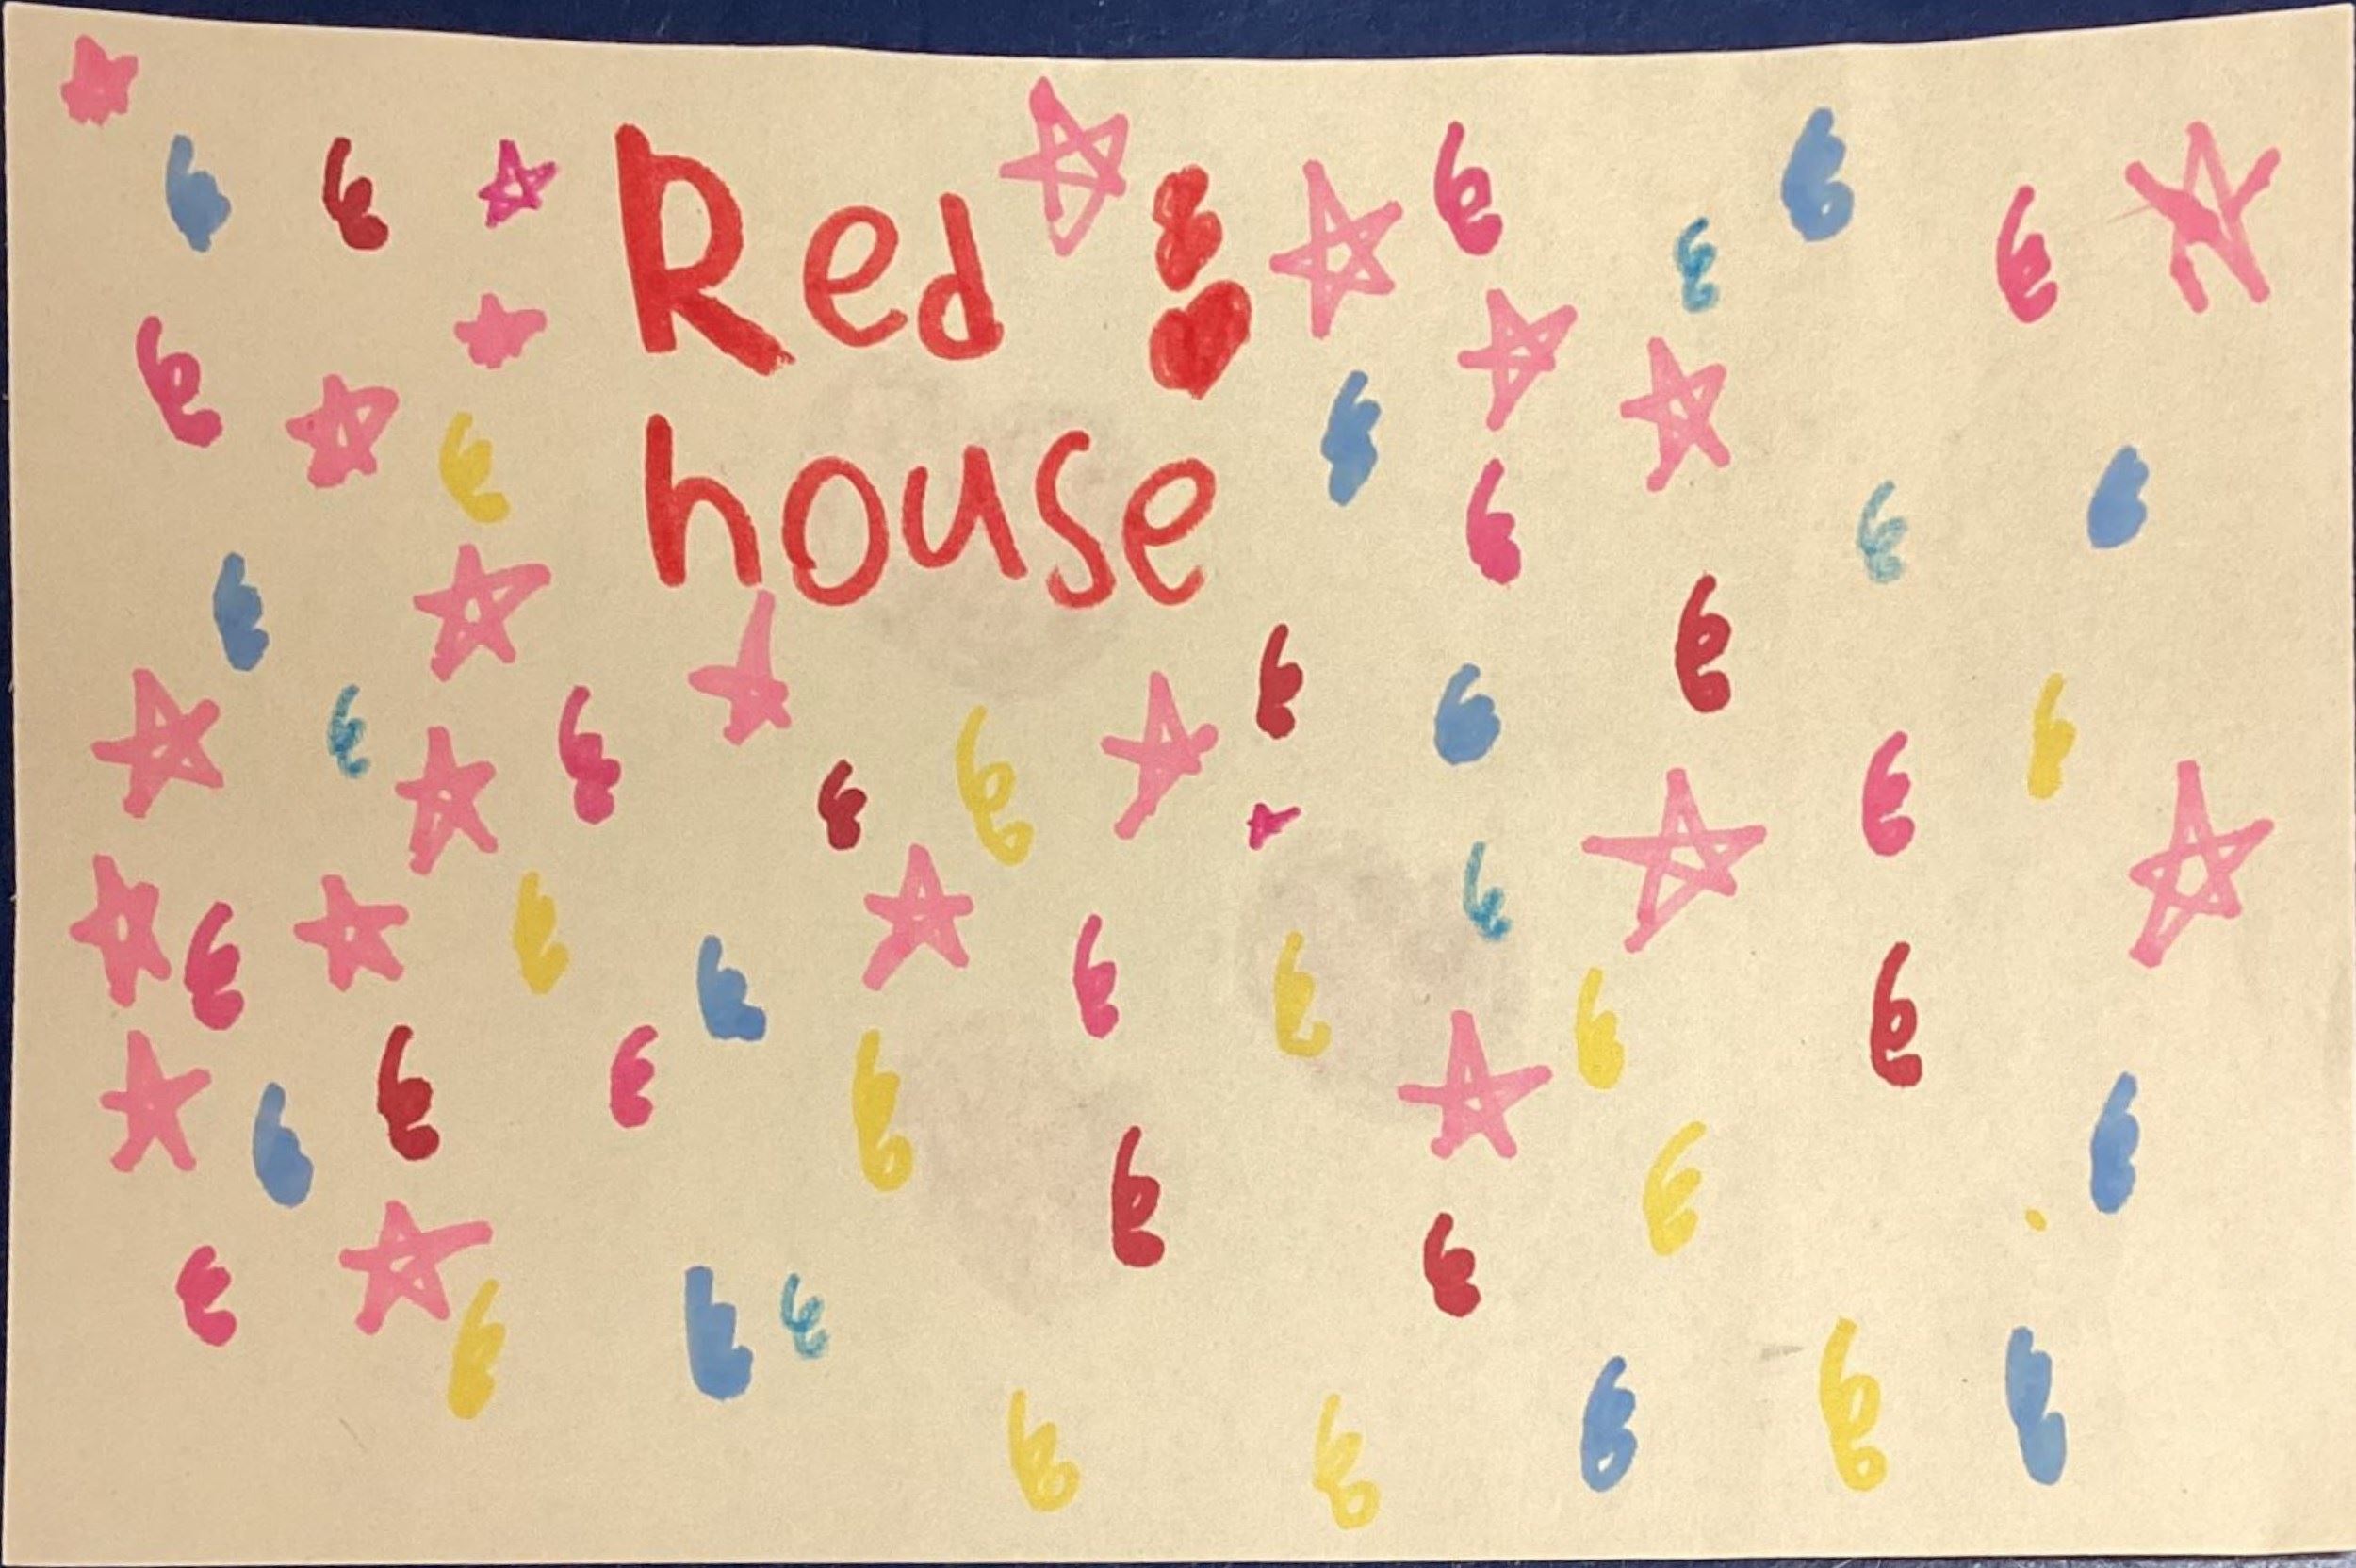 Red
house